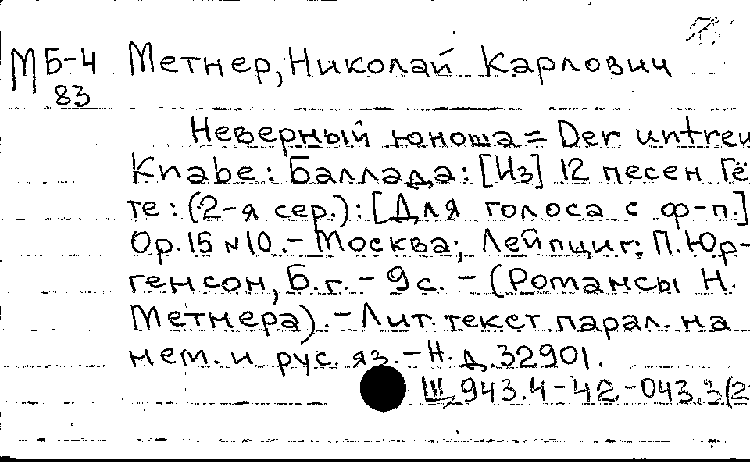 МБ-4 Метнер, Николай Карлович
83
Неверный юноша = Der untreu
Knabe: Баллада: [Из] 12 песен Гё-
те: (2-я сер.): [Для голоса с ф-п.]
Ор. 15 №10. - Москва; Лейпциг: П. Юр-
генсон, Б.г. - 9 с. - (Романсы Н.
Метнера). - Лит. текст парал. на
нем. и рус. яз. - Н. д. 32901.
Щ 943.4-42-043.3(2